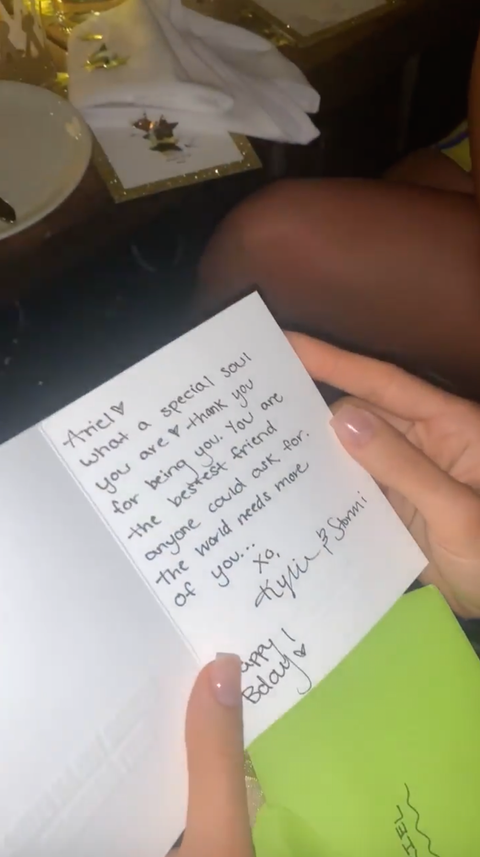 Ariel♡
what a special soul
you are ♥ thank you
for being you. You are
the bestest friend
anyone could ask for.
the world needs more
of you...
xo,
Kylie & Stormi
appy
Bday!♡
IEL